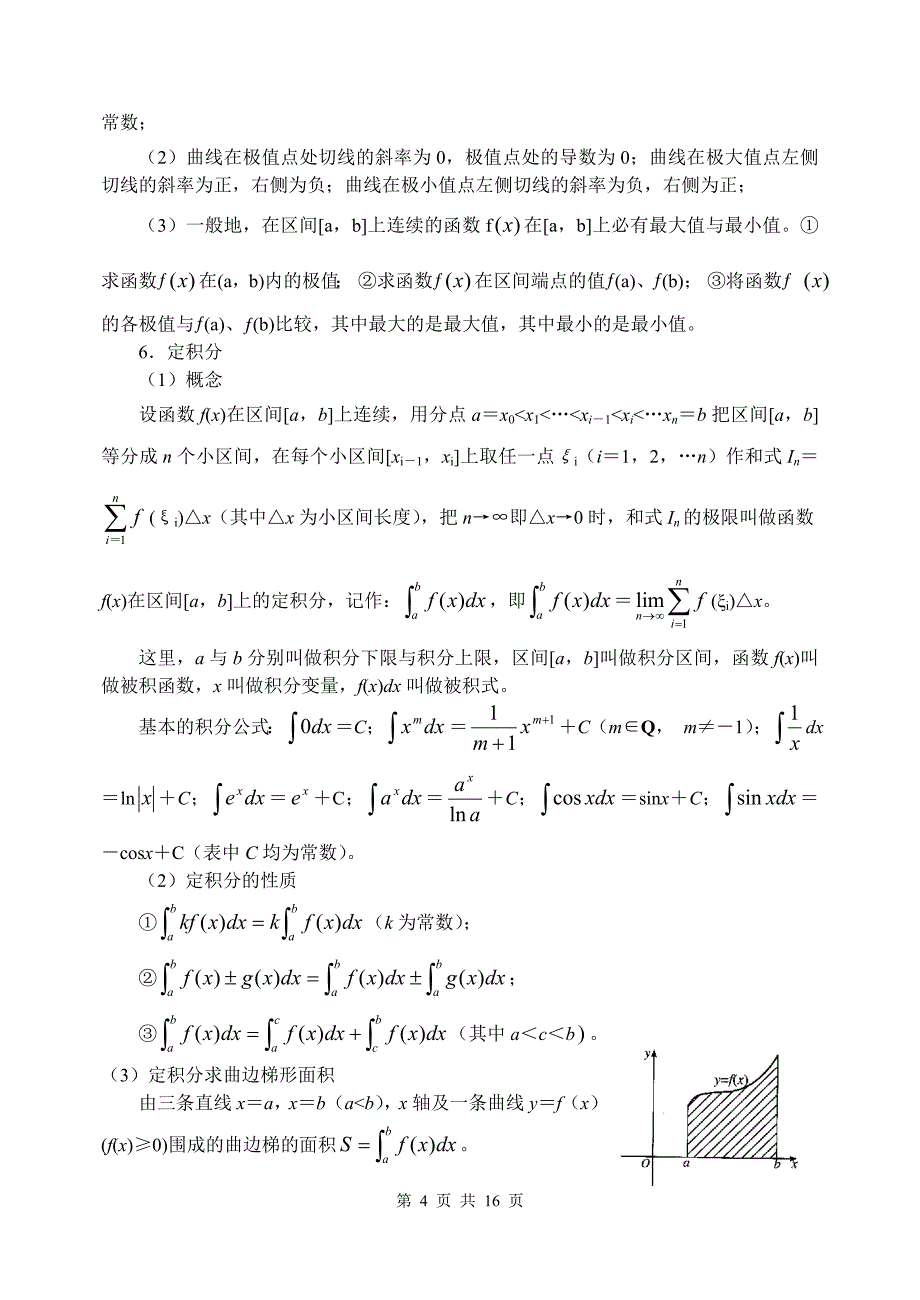 常数；
（2）曲线在极值点处切线的斜率为 0，极值点处的导数为 0；曲线在极大值点左侧
切线的斜率为正，右侧为负；曲线在极小值点左侧切线的斜率为负，右侧为正；
（3）一般地，在区间[a，b]上连续的函数 f(x)在[a，b]上必有最大值与最小值。①
求函数ƒ(x)在(a，b)内的极值； ②求函数ƒ(x)在区间端点的值ƒ(a)、ƒ(b)； ③将函数ƒ (x)
的各极值与ƒ(a)、ƒ(b)比较，其中最大的是最大值，其中最小的是最小值。
6．定积分
（1）概念
设函数 f(x)在区间[a，b]上连续，用分点 a＝x₀<x₁<…<xᵢ₋₁<xᵢ<…xₙ＝b 把区间[a，b]
等分成 n 个小区间，在每个小区间[xᵢ₋₁，xᵢ]上取任一点ξᵢ（i＝1，2，…n）作和式 Iₙ＝
$\sum_{i=1}^{n} f$ (ξᵢ)△x（其中△x 为小区间长度），把 n→∞即△x→0 时，和式 Iₙ的极限叫做函数
f(x)在区间[a，b]上的定积分，记作：$\int_a^b f(x)dx$，即$\int_a^b f(x)dx$＝$\lim_{n\to\infty}\sum_{i=1}^{n} f$ (ξᵢ)△x。
这里，a 与 b 分别叫做积分下限与积分上限，区间[a，b]叫做积分区间，函数 f(x)叫
做被积函数，x 叫做积分变量，f(x)dx 叫做被积式。
基本的积分公式：$\int 0dx$＝C；$\int x^m dx$＝$\frac{1}{m+1}x^{m+1}$＋C（m∈Q， m≠－1）；$\int \frac{1}{x}$dx
＝ln$|x|$＋C；$\int e^x dx$＝$e^x$＋C；$\int a^x dx$＝$\frac{a^x}{\ln a}$＋C；$\int \cos xdx$＝sinx＋C；$\int \sin xdx$＝
－cosx＋C（表中 C 均为常数）。
（2）定积分的性质
①$\int_a^b kf(x)dx = k\int_a^b f(x)dx$（k 为常数）；
②$\int_a^b f(x) \pm g(x)dx = \int_a^b f(x)dx \pm \int_a^b g(x)dx$；
③$\int_a^b f(x)dx = \int_a^c f(x)dx + \int_c^b f(x)dx$（其中 a＜c＜b）。
（3）定积分求曲边梯形面积
由三条直线 x＝a，x＝b（a<b），x 轴及一条曲线 y＝f（x）
(f(x)≥0)围成的曲边梯的面积$S = \int_a^b f(x)dx$。
y
y=f(x)
O a b x
第 4 页 共 16 页